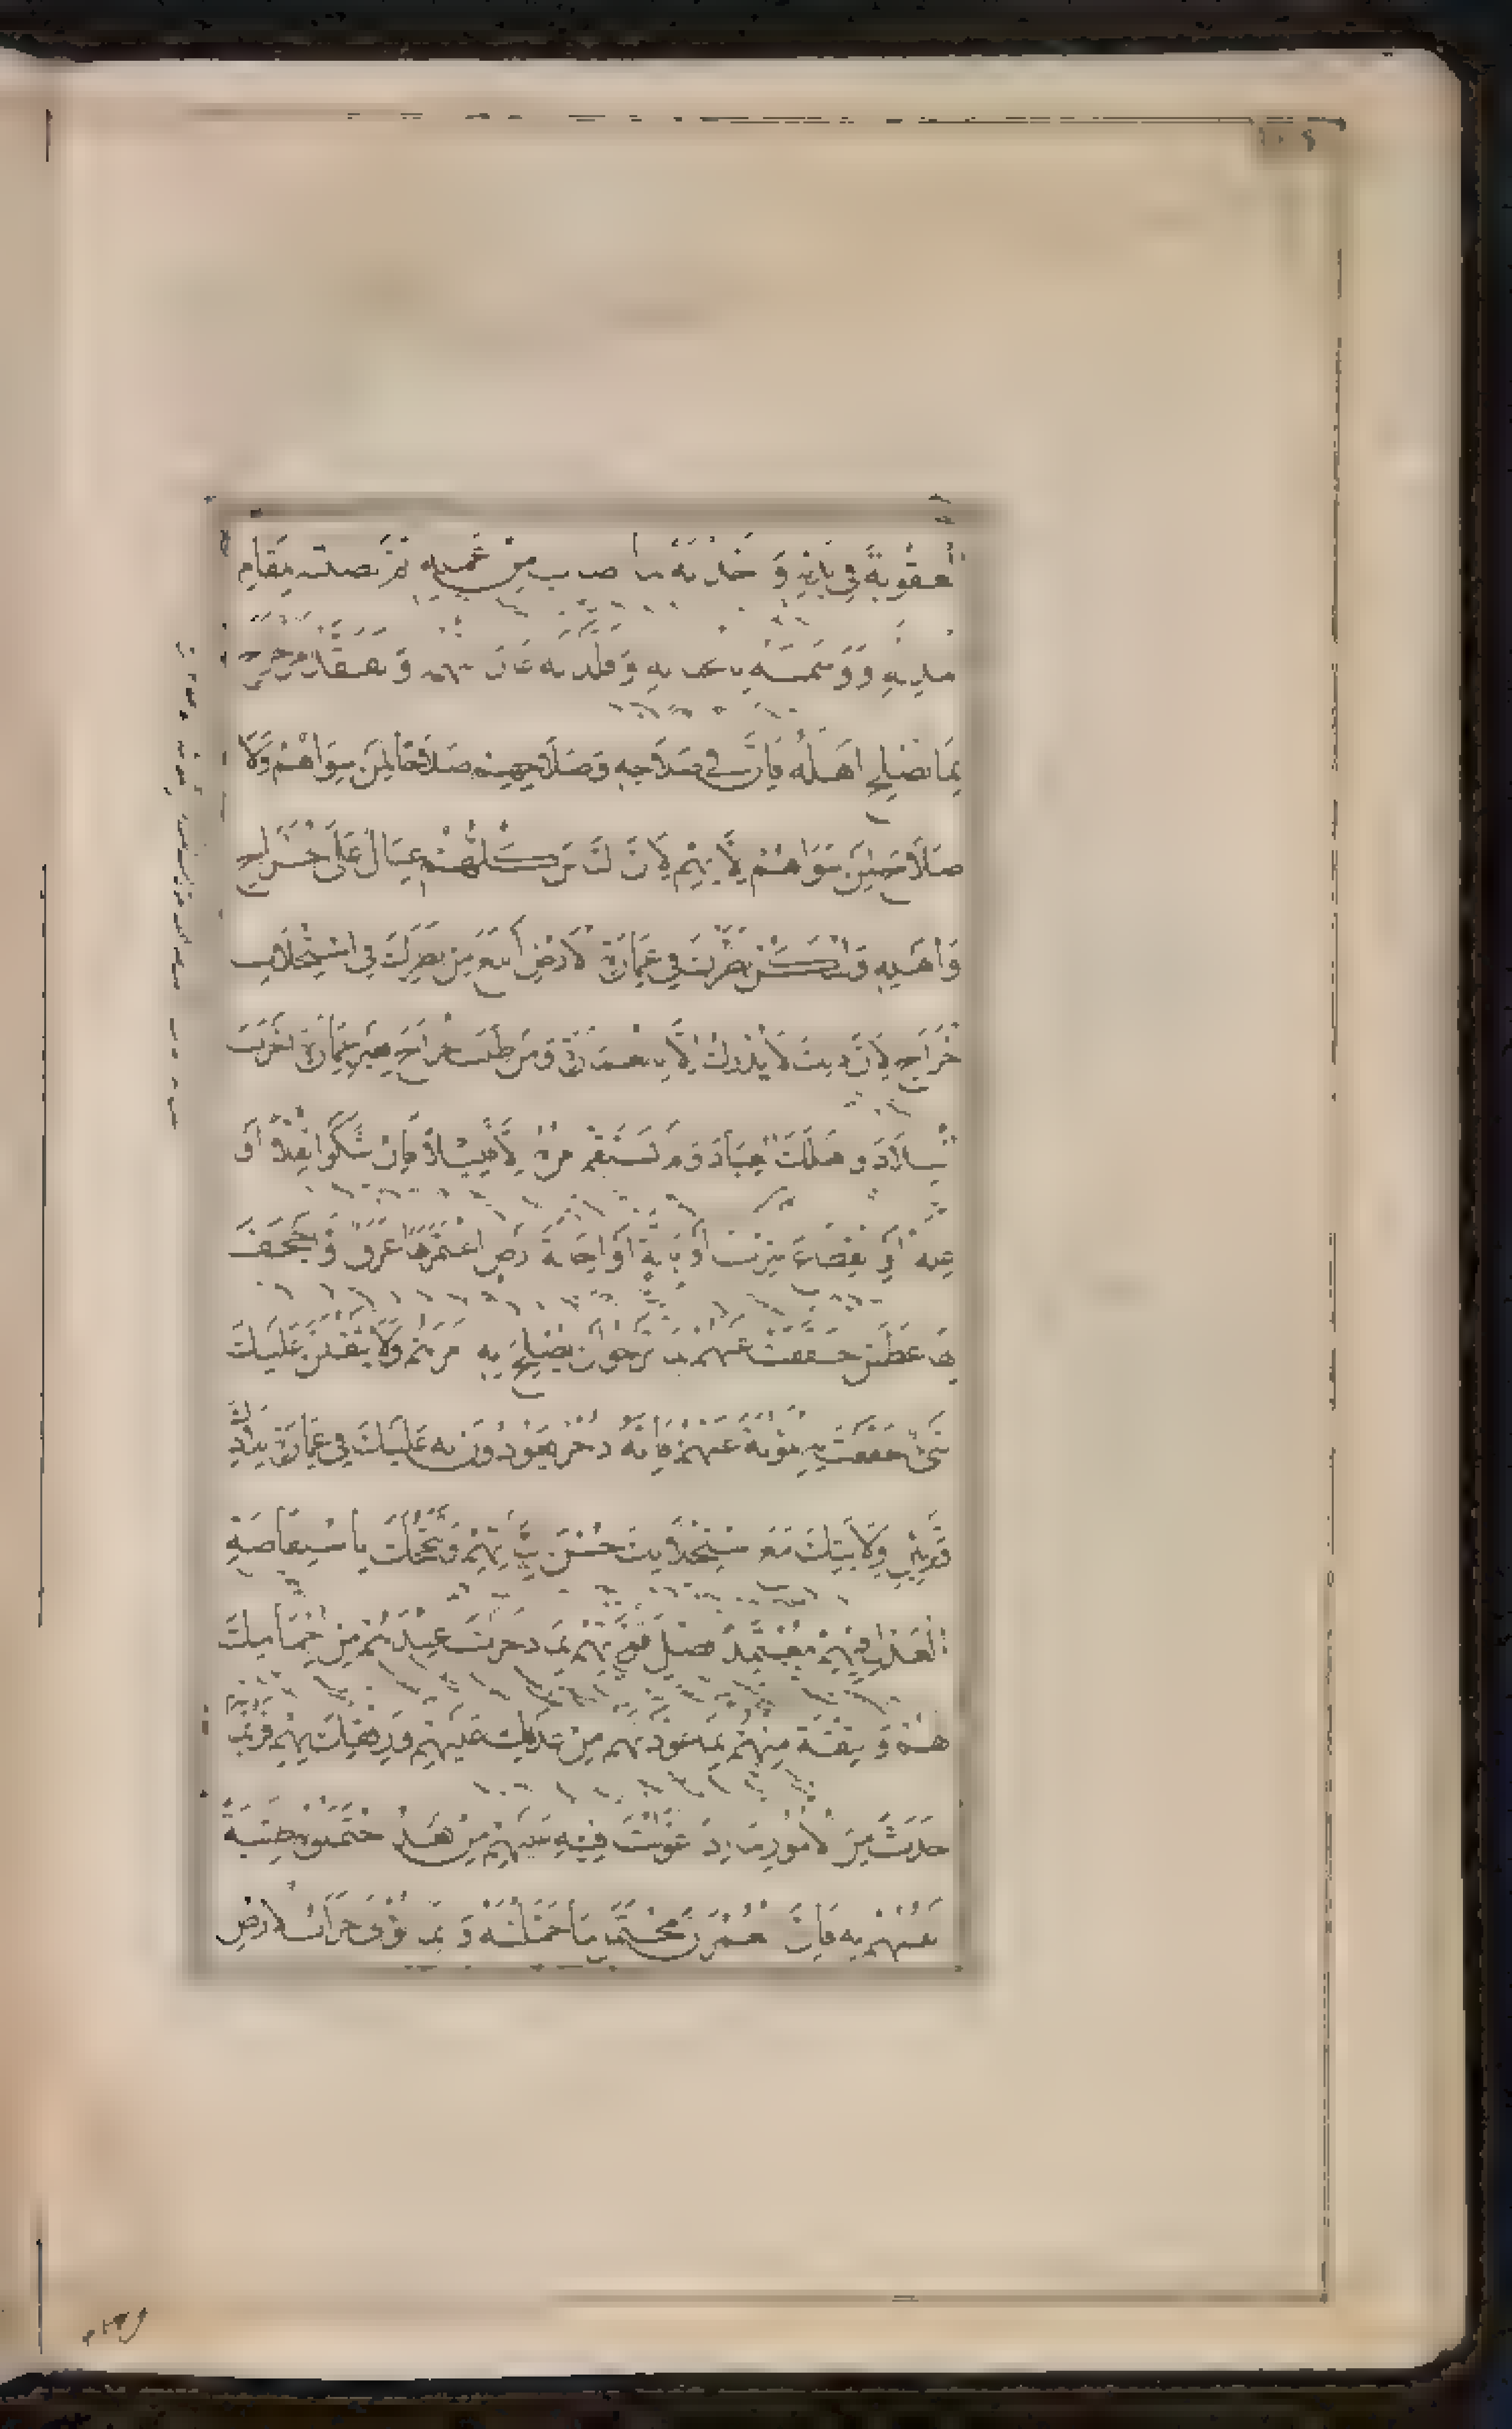 العقوبة في بدنه وأخذته بما أصاب من عمله ثم نصبته بمقام
المذلة ووسمته بالخيانة وقلدته عار التهمة وتفقد أمر الخراج
بما يصلح أهله فإن في صلاحه وصلاحهم صلاحا لمن سواهم ولا
صلاح لمن سواهم إلا بهم لأن الناس كلهم عيال على الخراج
وأهله وليكن نظرك في عمارة الأرض أبلغ من نظرك في استجلاب
الخراج لأن ذلك لا يدرك إلا بالعمارة ومن طلب الخراج بغير عمارة أخرب
البلاد وأهلك العباد ولم يستقم أمره إلا قليلا فإن شكوا ثقلا أو
علة أو انقطاع شرب أو بالة أو إحالة أرض اغتمرها غرق أو أجحف
بها عطش خففت عنهم بما ترجو أن يصلح به أمرهم ولا يثقلن عليك
شيء خففت به المؤونة عنهم فإنه ذخر يعودون به عليك في عمارة بلادك
وتزيين ولايتك مع استجلابك حسن ثنائهم وتبجحك باستفاضة
العدل فيهم معتمدا فضل قوتهم بما ذخرت عندهم من إجمامك
لهم والثقة منهم بما عودتهم من عدلك عليهم ورفقك بهم فربما
حدث من الأمور ما إذا عولت فيه عليهم من بعد احتملوه طيبة
أنفسهم به فإن العمران محتمل ما حملته وإنما يؤتى خراب الأرض